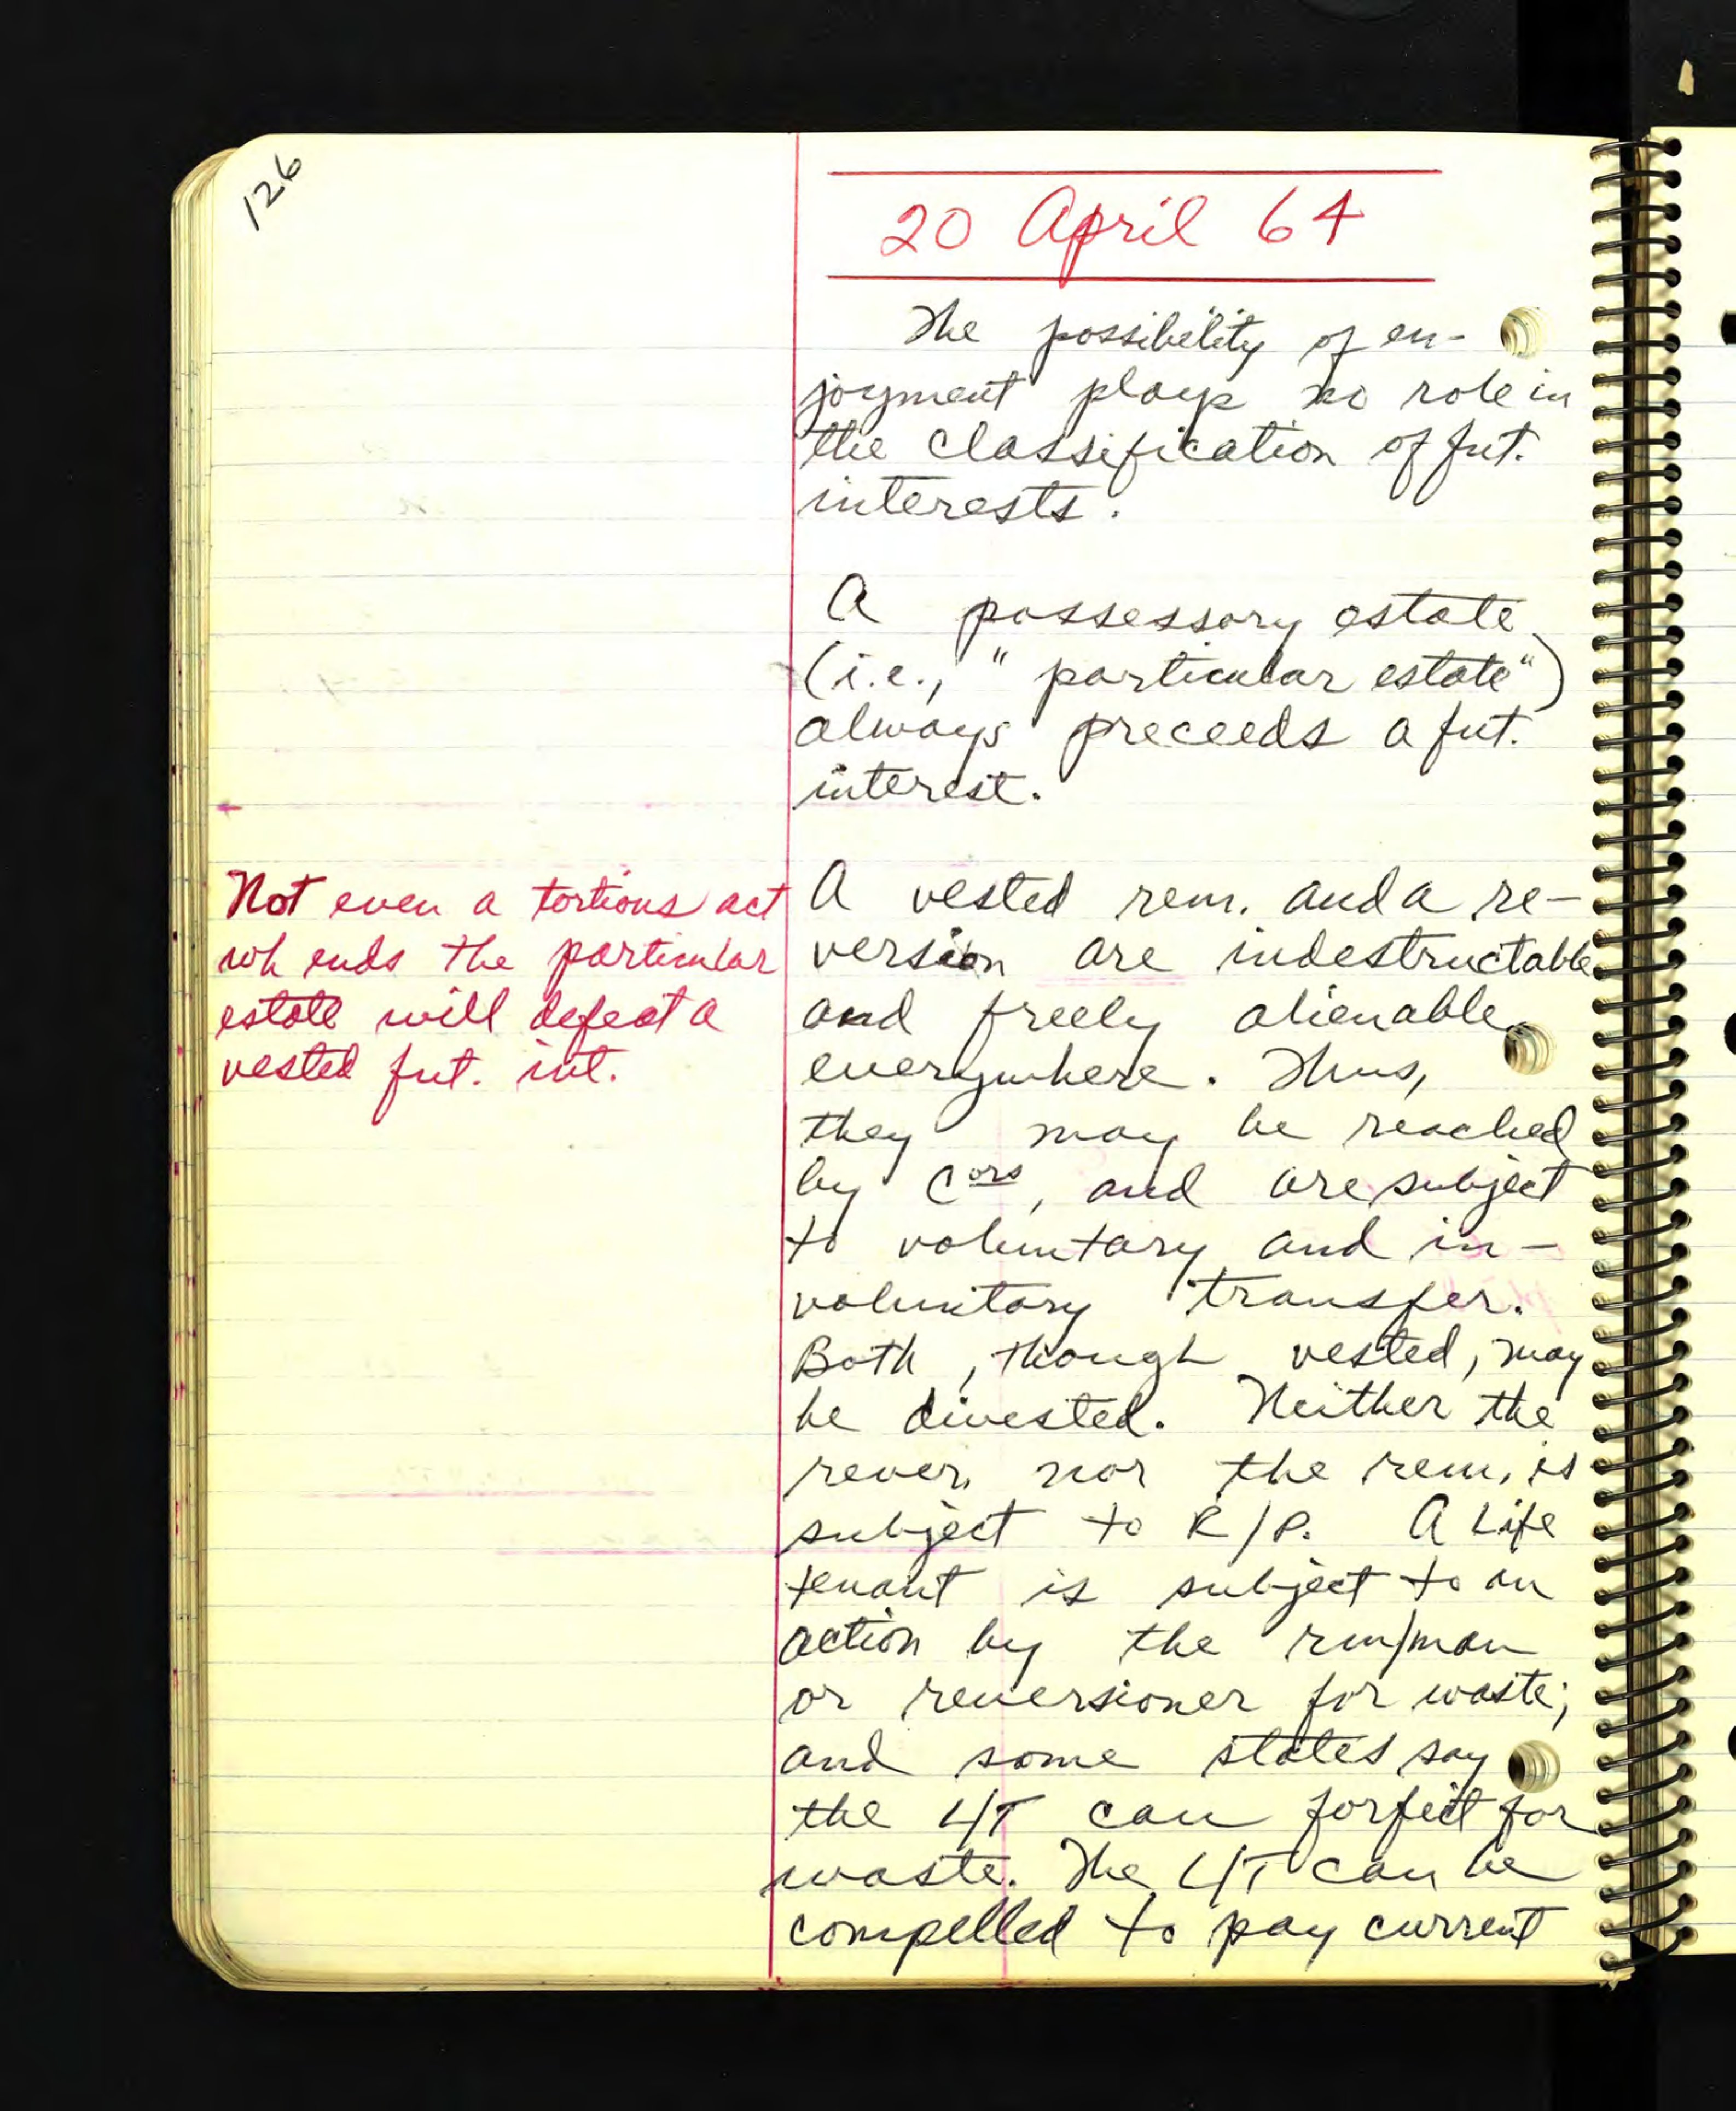 126
20 April 64
The possibility of en-
joyment plays no role in
the classification of fut.
interests.
A possessory estate
(i.e., "particular estate")
always preceeds a fut.
interest.
Not even a tortious act
wh ends the particular
estate will defeat a
vested fut. int.
A vested rem. and a re-
version are indestructable
and freely alienable
everywhere. Thus,
they may be reached
by Cors, and are subject
to voluntary and in-
voluntary transfer.
Both, though vested, may
be divested. Neither the
rever. nor the rem. is
subject to R/P. A Life
tenant is subject to an
action by the rm/man
or reversioner for waste;
and some states say
the L/T can forfeit for
waste. The L/T can be
compelled to pay current